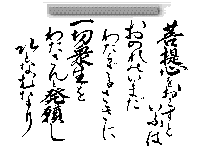 菩提心をおこすと
いふは
おのれいまだ
わたらざるさきに
一切衆生を
わたさんと発願し
いとなむなり